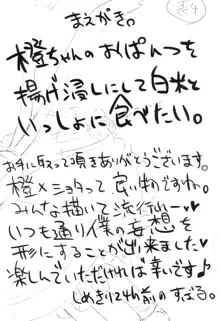 まえがき。
橙ちゃんのおぱんつを
揚げ浸しにして白米と
いっしょに食べたい。
お手に取って頂きありがとうございます。
橙×ショタって良い物ですわ。
みんな描いて流行れーッ♥
いつも通り僕の妄想を
形にすることが出来ました♥
楽しんでいただければ幸いです♪
しめきり24h前のすばる。